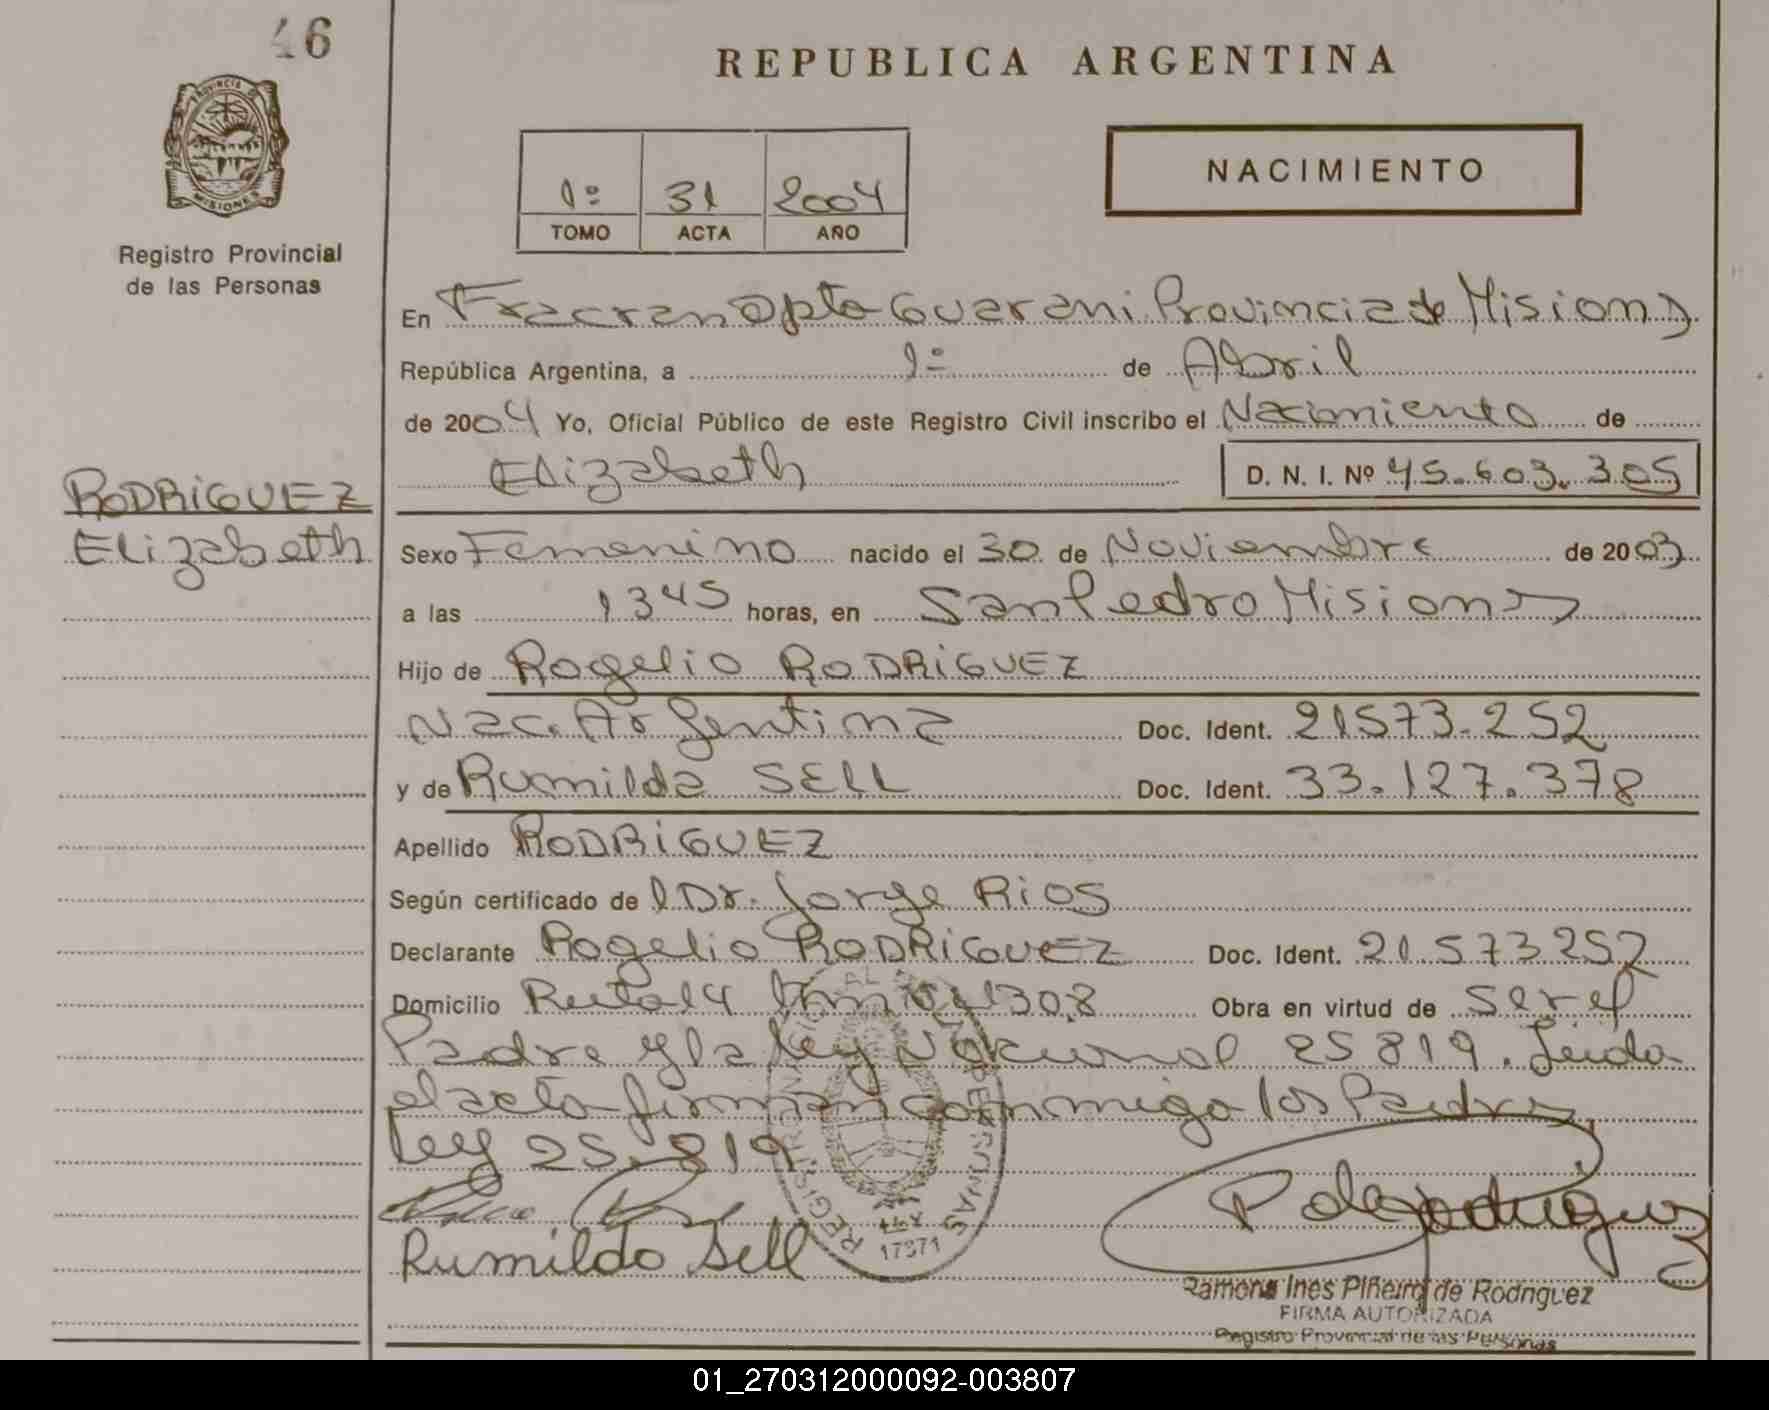 46
REPUBLICA ARGENTINA
NACIMIENTO
1º 31 2004
TOMO ACTA AÑO
PROVINCIA DE MISIONES
Registro Provincial
de las Personas
En Fracran Dpto Guarani Provincia de Misiones
República Argentina, a 1º de Abril
de 2004 Yo, Oficial Público de este Registro Civil inscribo el Nacimiento de
Elizabeth D. N. I. Nº 45.603.305
RODRIGUEZ
Elizabeth
Sexo Femenino nacido el 30 de Noviembre de 2003
a las 1345 horas, en San Pedro Misiones
Hijo de Rogelio RODRIGUEZ
Nac. Argentina Doc. Ident. 21573.252
y de Rumilda SELL Doc. Ident. 33.127.378
Apellido RODRIGUEZ
Según certificado de l Dr. Jorge Rios
Declarante Rogelio RODRIGUEZ Doc. Ident. 21.573252
Domicilio Ruta 14 1308 Obra en virtud de ser el
Padre y la ley Nacional 25819. Leida
el acta firman conmigo los Padres
ley 25.819
REGISTRO PROVINCIAL DE LAS PERSONAS
17371
Rumilda Sell
P de Rodriguez
Ramona Ines Piñeiro de Rodriguez
FIRMA AUTORIZADA
Registro Provincial de las Personas
01_270312000092-003807